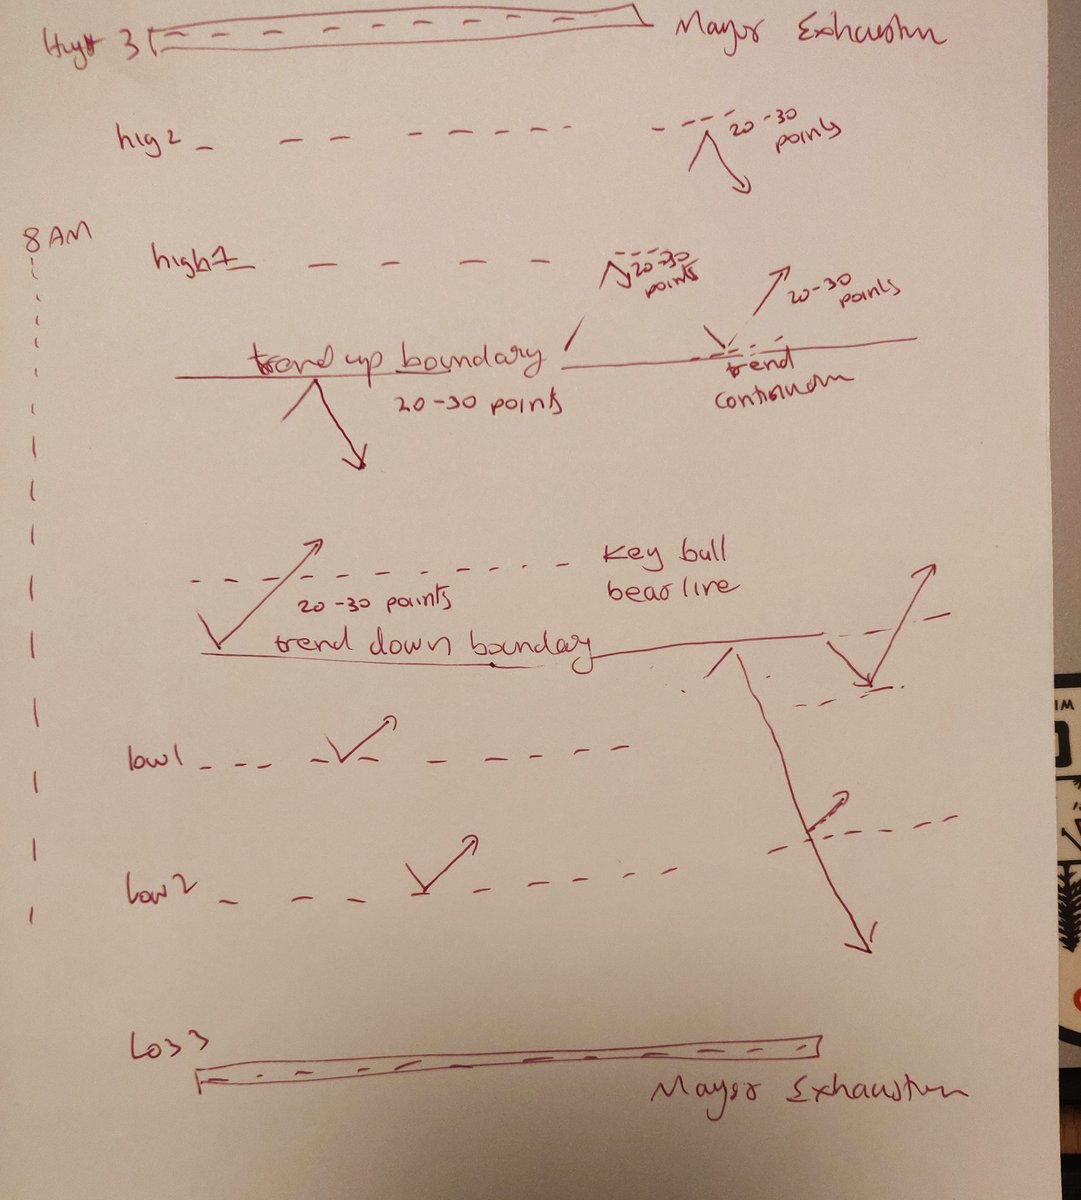 High 3
Mayor Exhaustn
hig2
20-30
points
8 AM
high1
20-30
points
20-30
points
trend up boundary
trend
continuom
20-30 points
Key bull
bear line
20-30 points
trend down boundary
low1
low2
Los3
Mayor Exhaustn
WI